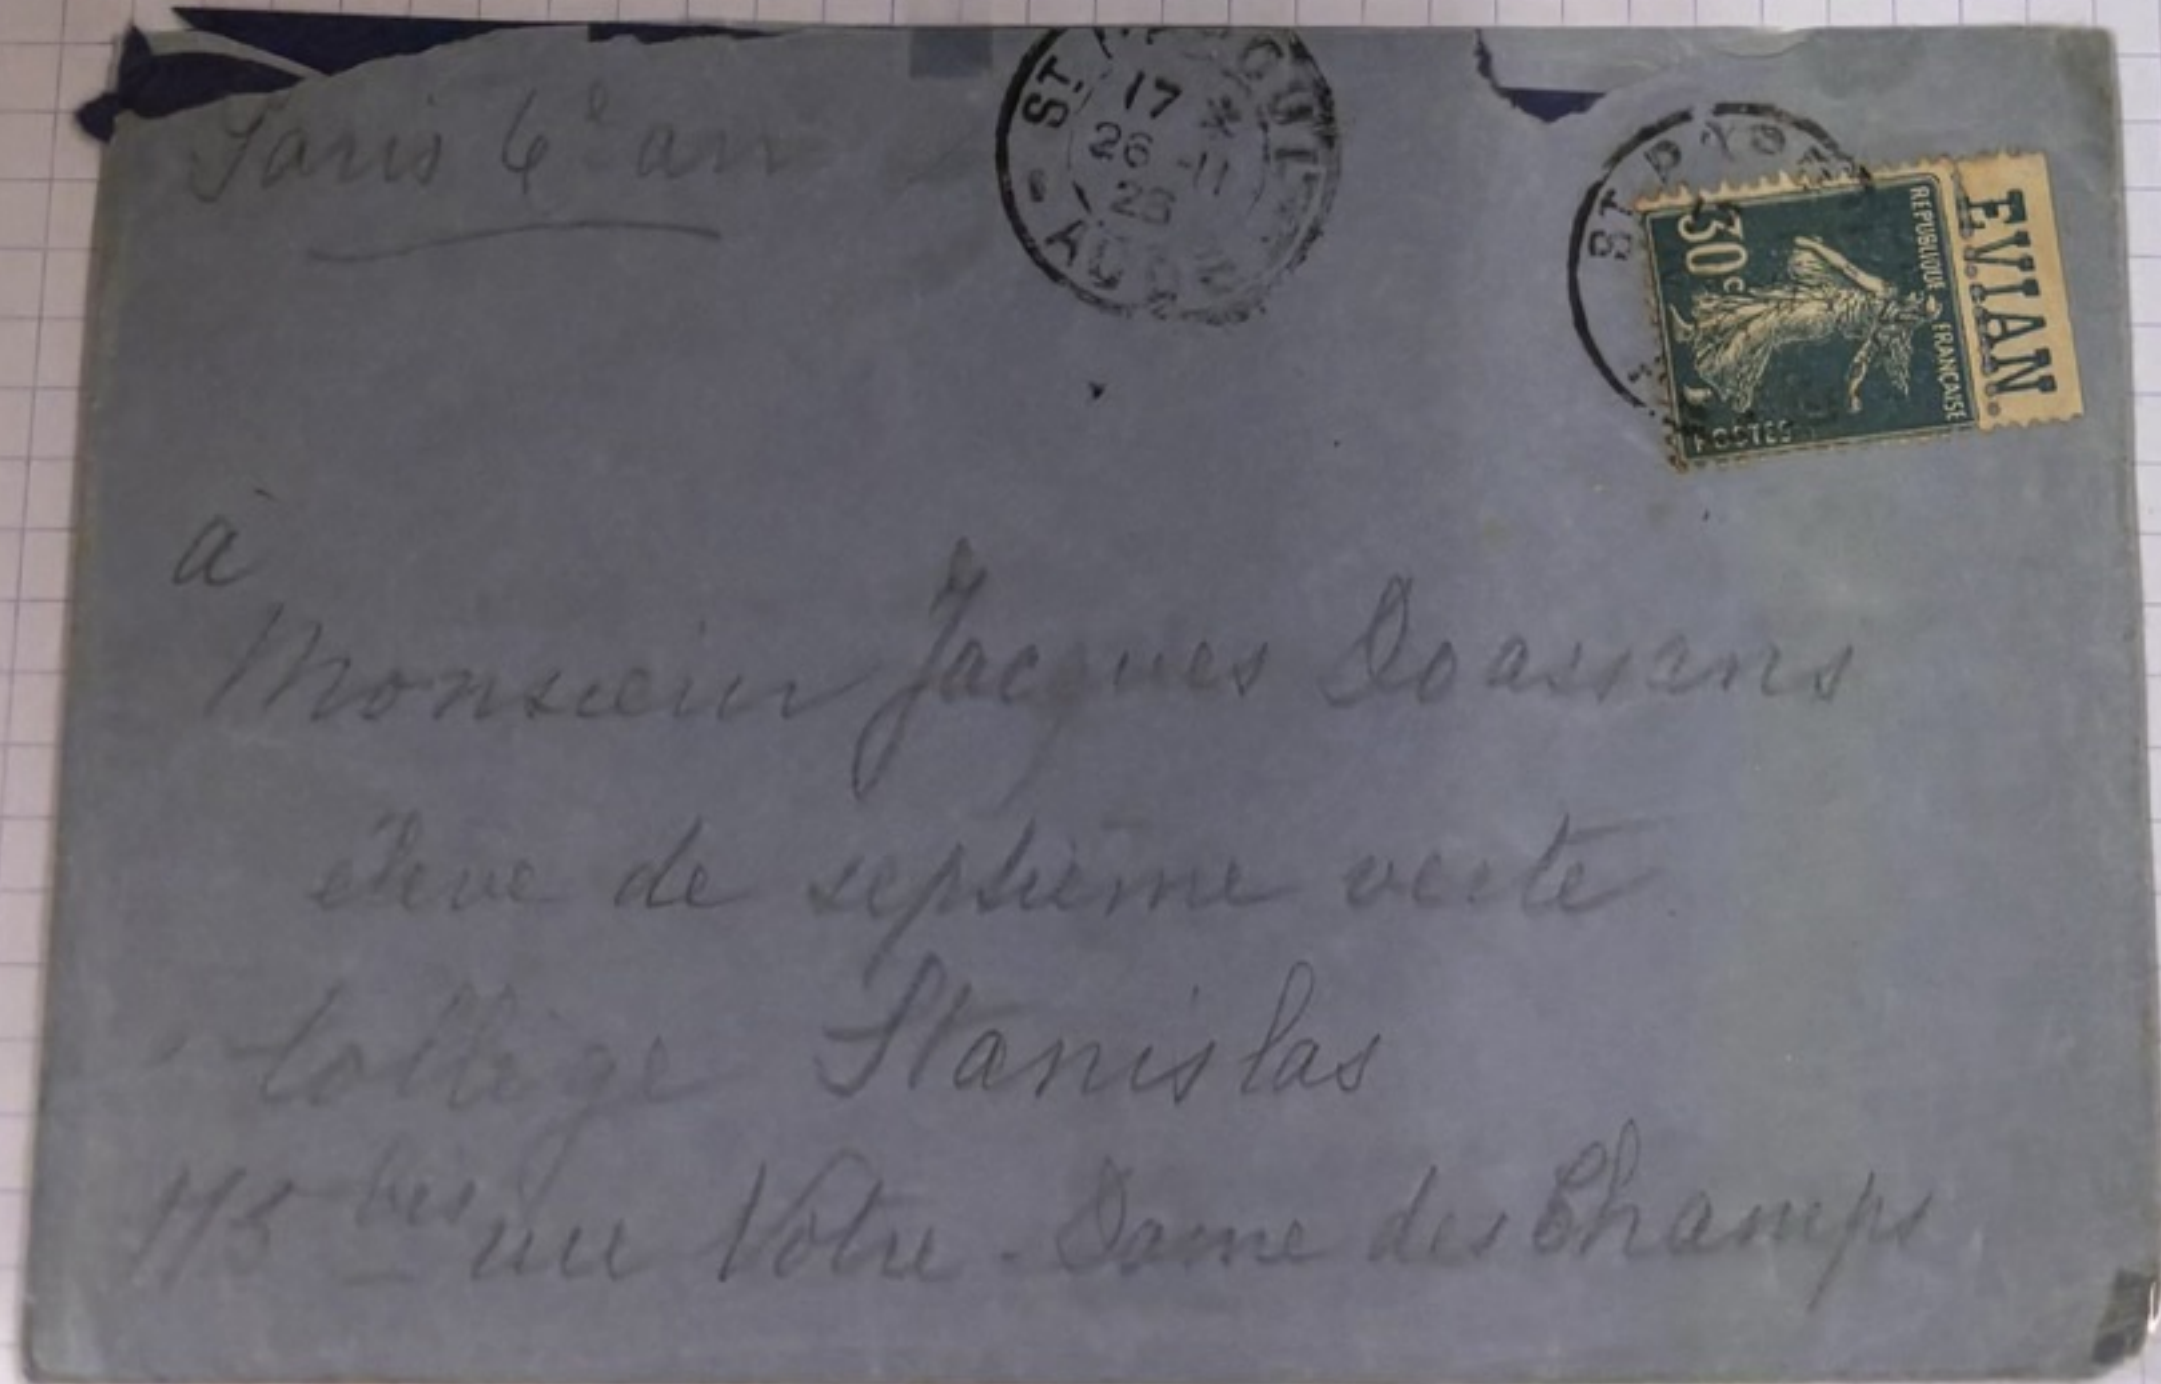 Paris 6e arr
ST
17 *
26 -11
28
AUDE
ST P
30c
REPUBLIQUE FRANÇAISE
POSTES
EVIAN.
à
Monsieur Jacques Doassans
élève de septième verte
Collège Stanislas
bis rue Notre-Dame des Champs